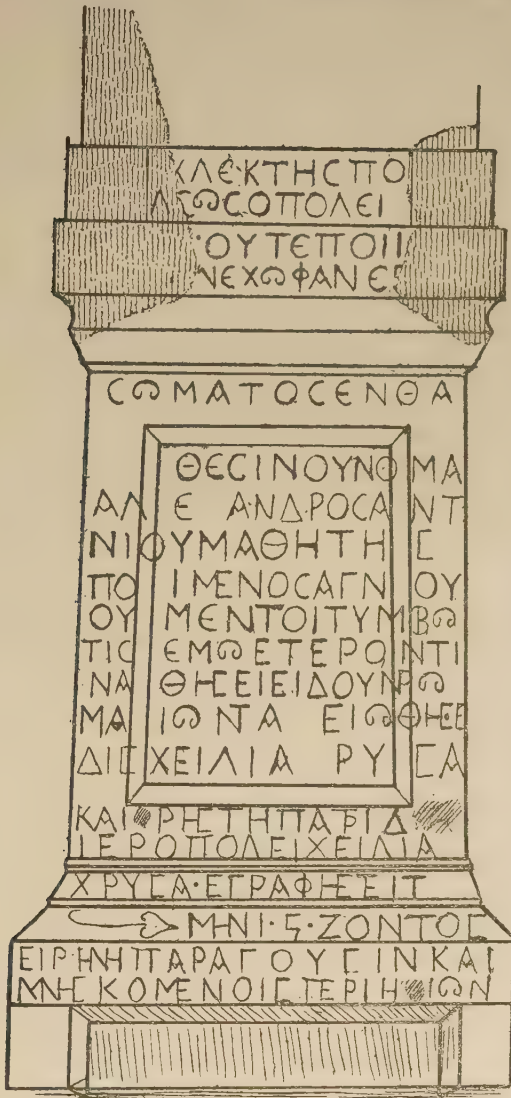 ΚΛΕΚΤΗϹΠΟ
ΛΕΩϹΟΠΟΛΕΙ
ΟΥΤΕΠΟΙΙ
ΝΕΧΩΦΑΝΕ
ϹΩΜΑΤΟϹΕΝΘΑ
ΘΕϹΙΝΟΥΝΟΜΑ
ΑΛ Ε ΑΝΔΡΟϹΑ ΝΤ
ΝΙΟΥΜΑΘΗΤΗϹ
ΠΟΙΜΕΝΟϹΑΓΝ ΟΥ
ΟΥ ΜΕΝΤΟΙΤΥΜΒΩ
ΤΙϹ ΕΜΩΕΤΕΡΟΝΤΙ
ΝΑ ΘΗϹΕΙΕΙΔΟΥΝΡΩ
ΜΑ ΙΩΝΤΑ ΕΙΩΘΗϹΕ
ΔΙϹΧΕΙΛΙΑ ΡΥϹΑ
ΚΑΙ ΡΗϹΤΗΠΑΡΙΔ
ΙΕΡΟΠΟΛΕΙΧΕΙΛΙΑ
ΧΡΥϹΑ·ΕΓΡΑΦΗΕΕΙΤ
ΜΗΝΙ·Ϛ·ΖΟΝΤΟϹ
ΕΙΡΗΝΗΠΑΡΑΓΟΥϹΙΝΚΑΙ
ΜΝΗϹΚΟΜΕΝΟΙϹΠΕΡΙΗ ΙΩΝ